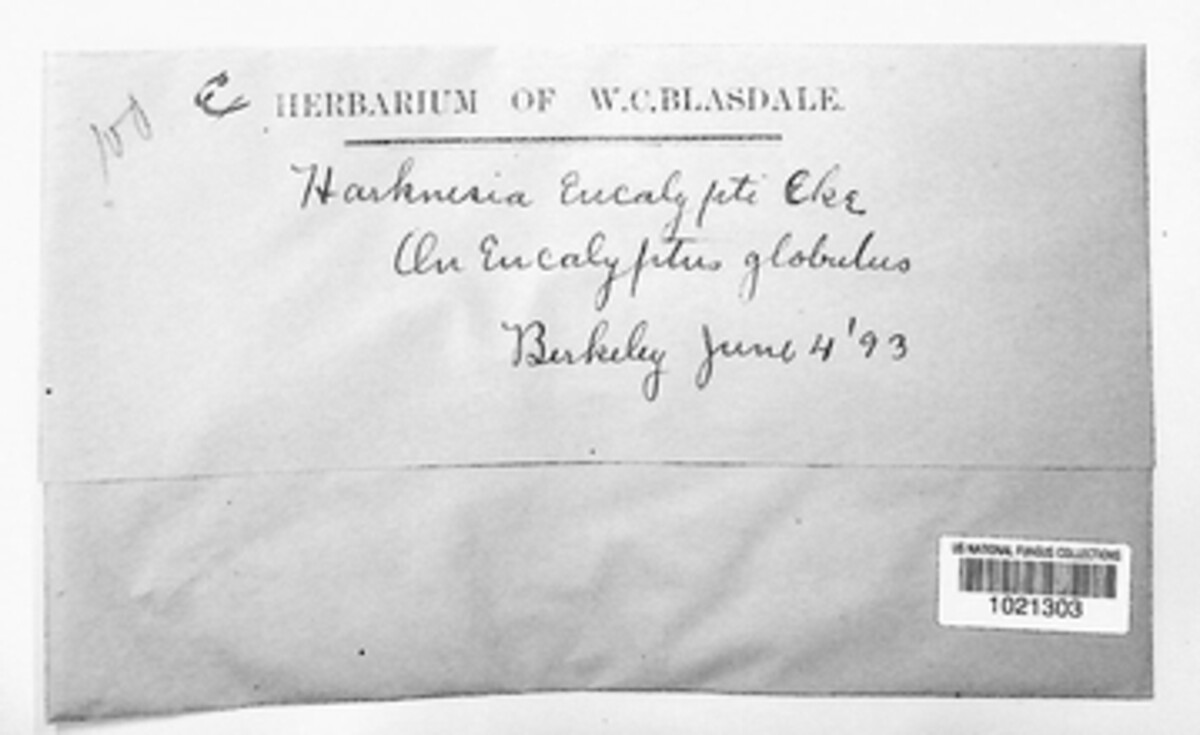 HERBARIUM OF W.C.BLASDALE.
Harknesia Eucalypti Cke
On Eucalyptus globulus
Berkeley June 4 '93
US NATIONAL FUNGUS COLLECTIONS
1021303